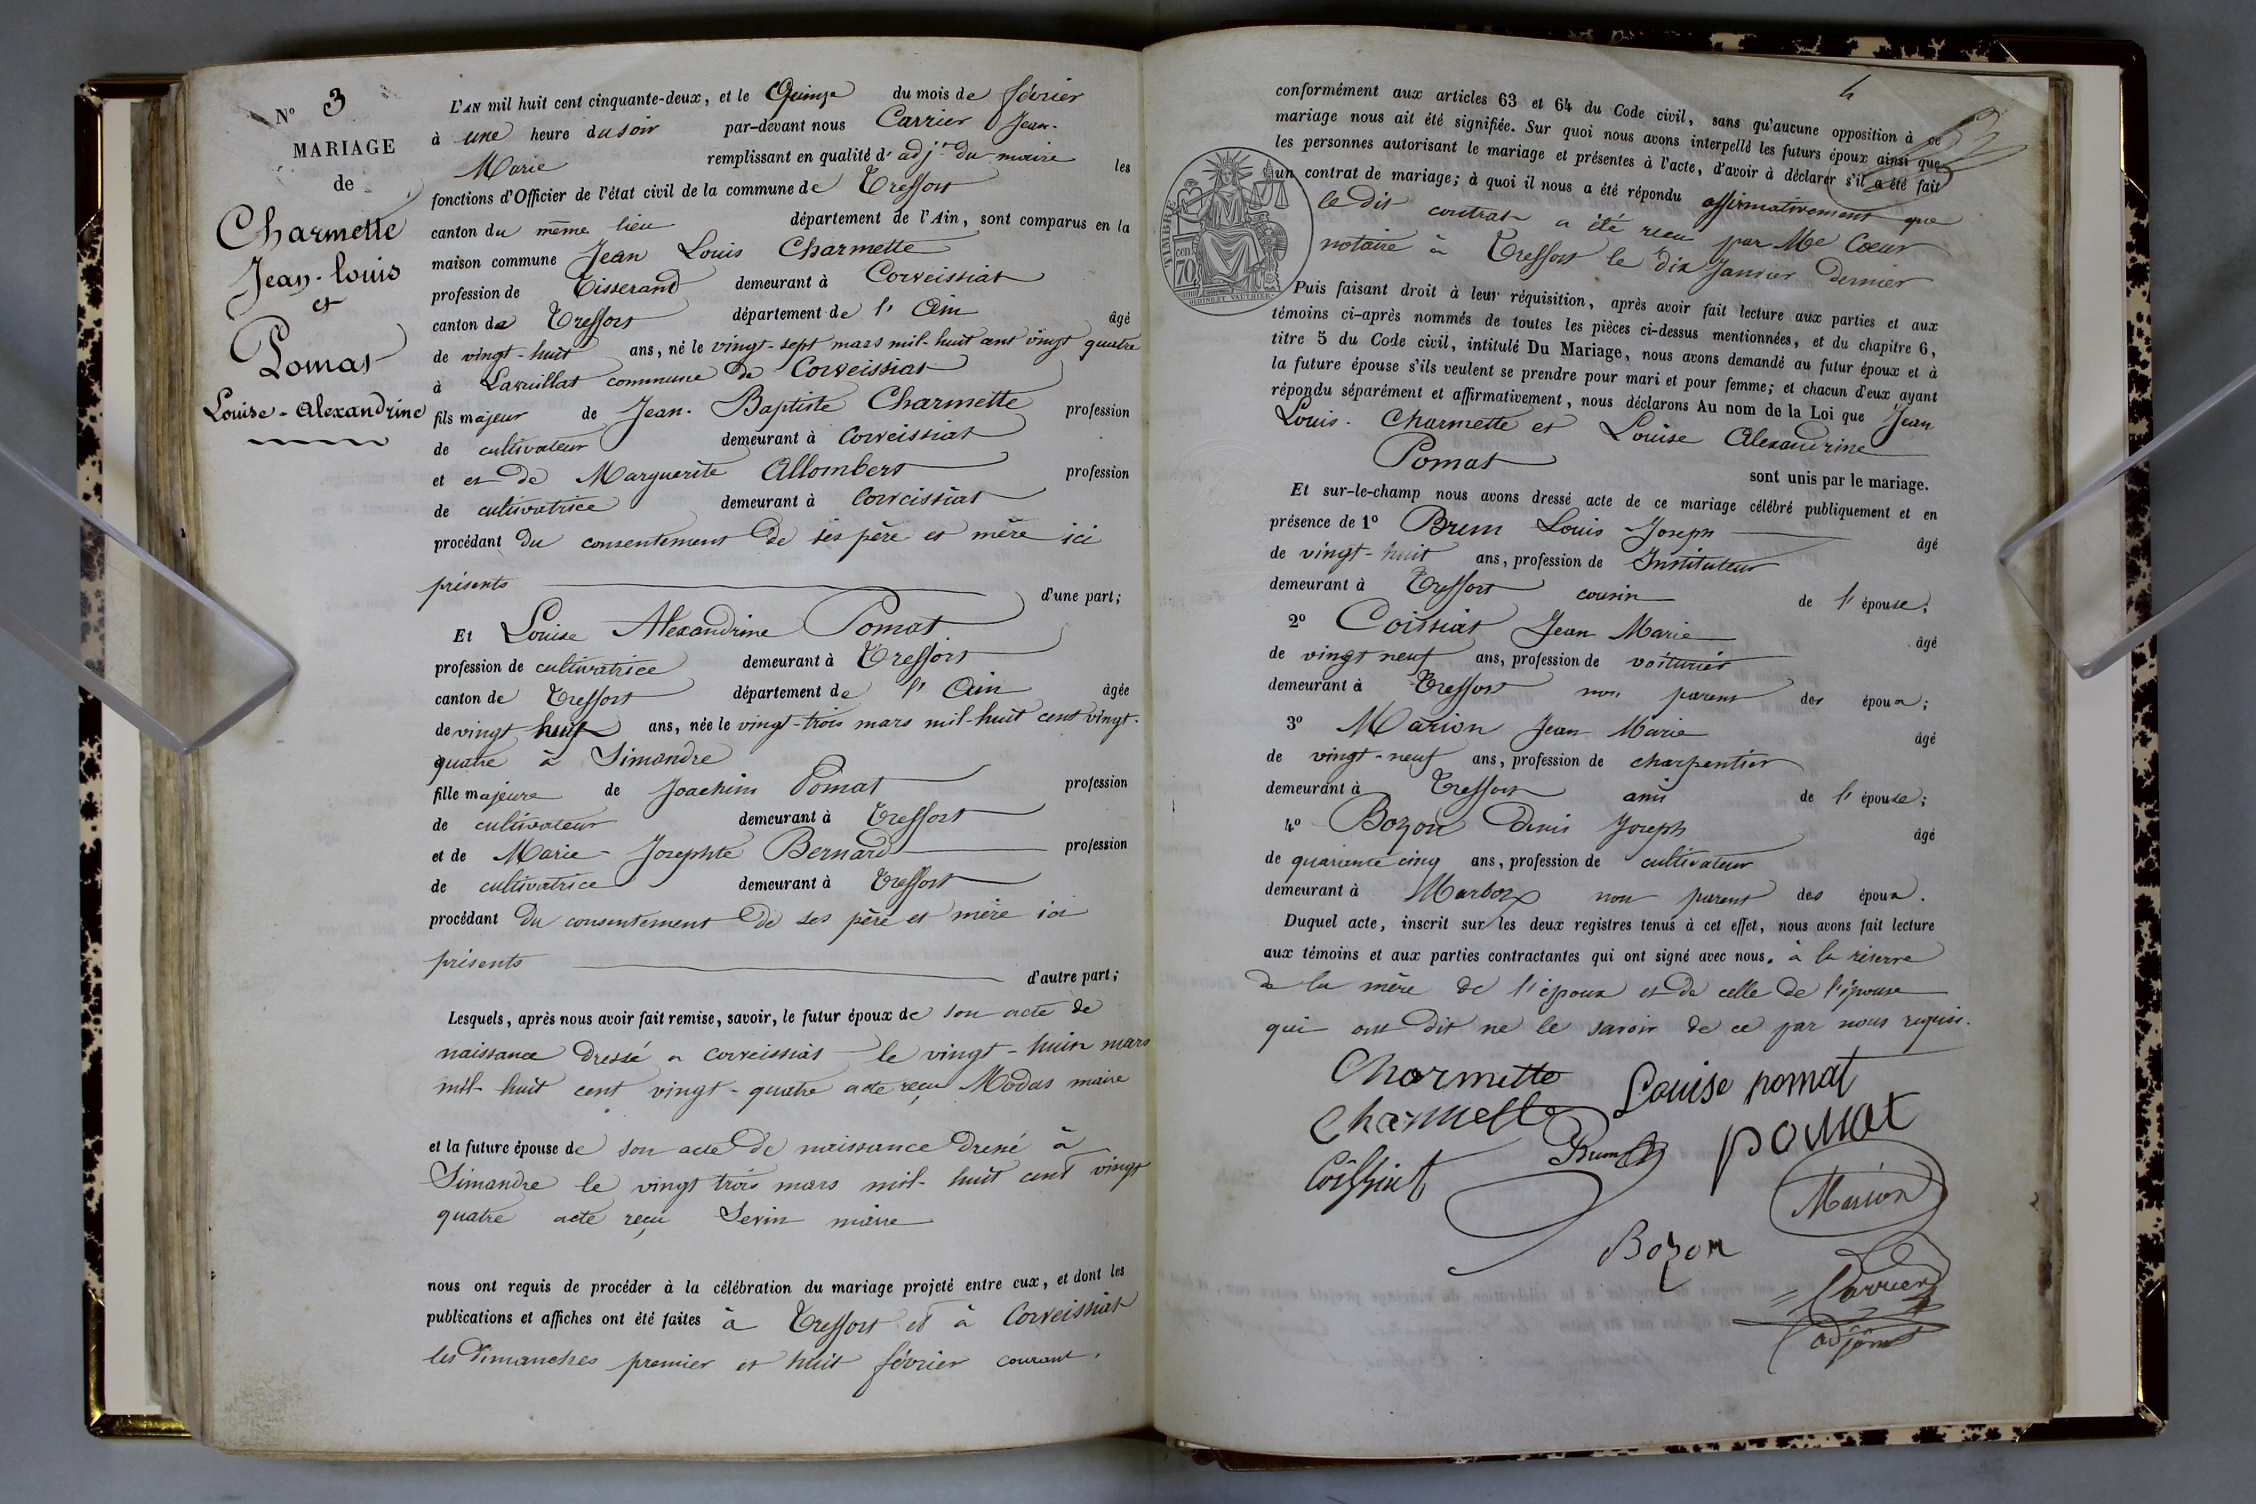 N° 3
MARIAGE
de
Charmette
Jean-Louis
et
Pomat
Louise-Alexandrine
L'AN mil huit cent cinquante-deux, et le Quinze du mois de février
à une heure du soir par-devant nous Carrier Jean-
Marie remplissant en qualité d' adj.t du maire les
fonctions d'Officier de l'état civil de la commune de Treffort
canton du même lieu département de l'Ain, sont comparus en la
maison commune Jean Louis Charmette
profession de Tisserand demeurant à Corveissiat
canton de Treffort département de l' Ain âgé
de vingt-huit ans, né le vingt-sept mars mil-huit cent vingt quatre
à commune de Corveissiat
fils majeur de Jean-Baptiste Charmette profession
de cultivateur demeurant à Corveissiat
et et de Marguerite Allombert profession
de cultivatrice demeurant à Corveissiat
procédant du consentement de ses père et mère ici
présents d'une part;
Et Louise Alexandrine Pomat
profession de cultivatrice demeurant à Treffort
canton de Treffort département de l' Ain âgée
de vingt huit ans, née le vingt-trois mars mil-huit cent vingt-
quatre à Simandre
fille majeure de Joachim Pomat profession
de cultivateur demeurant à Treffort
et de Marie-Josephte Bernard profession
de cultivatrice demeurant à Treffort
procédant du consentement de ses père et mère ici
présents d'autre part;
Lesquels, après nous avoir fait remise, savoir, le futur époux de son acte de
naissance dressé a Corveissiat le vingt-huit mars
mil-huit cent vingt-quatre acte reçu Modas maire
et la future épouse de son acte de naissance dressé à
Simandre le vingt trois mars mil-huit cent vingt
quatre acte reçu Sevin maire
nous ont requis de procéder à la célébration du mariage projeté entre eux, et dont les
publications et affiches ont été faites à Treffort et à Corveissiat
les dimanches premier et huit février courant.
4
conformément aux articles 63 et 64 du Code civil, sans qu'aucune opposition à ce
mariage nous ait été signifiée. Sur quoi nous avons interpellé les futurs époux ainsi que
les personnes autorisant le mariage et présentes à l'acte, d'avoir à déclarer s'il a été fait
un contrat de mariage; à quoi il nous a été répondu affirmativement que
le dit contrat a été reçu par Me Cœur
notaire à Treffort le dix Janvier dernier
TIMBRE
70
Puis faisant droit à leur réquisition, après avoir fait lecture aux parties et aux
témoins ci-après nommés de toutes les pièces ci-dessus mentionnées, et du chapitre 6,
titre 5 du Code civil, intitulé Du Mariage, nous avons demandé au futur époux et à
la future épouse s'ils veulent se prendre pour mari et pour femme; et chacun d'eux ayant
répondu séparément et affirmativement, nous déclarons Au nom de la Loi que Jean
Louis Charmette et Louise Alexandrine
Pomat
sont unis par le mariage.
Et sur-le-champ nous avons dressé acte de ce mariage célébré publiquement et en
présence de 1° Brun Louis Joseph âgé
de vingt-huit ans, profession de Instituteur
demeurant à Treffort cousin de l' épouse;
2° Coissiat Jean Marie âgé
de vingt neuf ans, profession de voiturier
demeurant à Treffort non parent des époux;
3° Marion Jean Marie âgé
de vingt-neuf ans, profession de charpentier
demeurant à Treffort ami de l' épouse;
4° Bozon Denis Joseph âgé
de quarante cinq ans, profession de cultivateur
demeurant à Marboz non parent des époux.
Duquel acte, inscrit sur les deux registres tenus à cet effet, nous avons fait lecture
aux témoins et aux parties contractantes qui ont signé avec nous. à la réserve
de la mère de l'époux et de celle de l'épouse
qui ont dit ne le savoir de ce par nous requis.
Charmette Louise pomat
Charmette Brun pomat
Coissiat Marion
Bozon
Carrier
adjoint